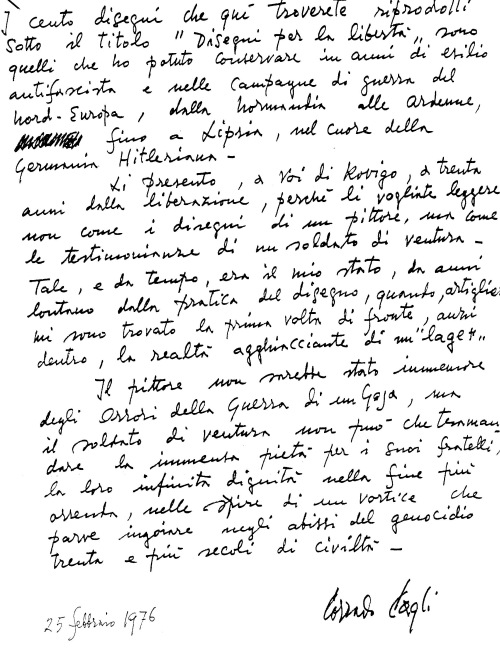 I cento disegni che qui troverete riprodotti
sotto il titolo "Disegni per la libertà" sono
quelli che ho potuto conservare in anni di esilio
antifascista e nelle Campagne di guerra del
Nord-Europa, dalla Normandia alle Ardenne,
fino a Lipsia, nel cuore della
Germania Hitleriana -
Li presento, a voi di Rovigo, a trenta
anni dalla liberazione, perché li vogliate leggere
non come i disegni di un pittore, ma come
le testimonianze di un soldato di ventura -
Tale, e da tempo, era il mio stato, da anni
lontano dalla pratica del disegno, quando, artigliere
mi sono trovato la prima volta di fronte, anzi
dentro, la realtà agghiacciante di un "lager"
Il pittore non sarebbe stato immemore
degli Orrori della Guerra di un Goja, ma
il soldato di ventura non può che traman
dare la immensa pietà per i suoi fratelli,
la loro infinita dignità nella fine più
orrenda, nelle spire di un vortice che
parve ingoiare negli abissi del genocidio
trenta e più secoli di civiltà -
Corrado Cagli
25 febbraio 1976